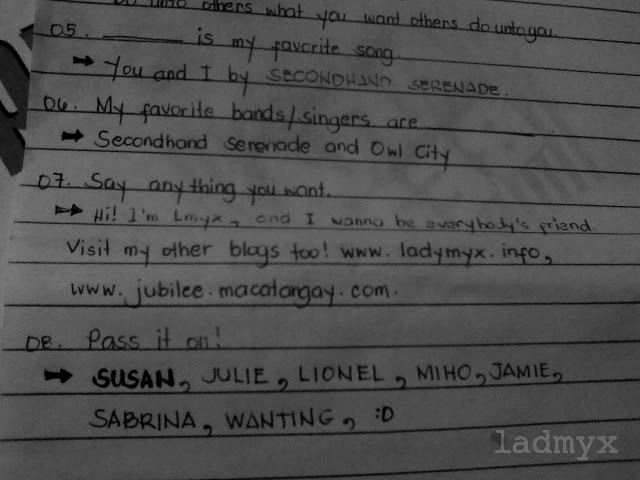 others what you want others do unto you.
05. ________ is my favorite song.
➡ You and I by SECONDHAND SERENADE.
06. My favorite bands/singers are ________.
➡ Secondhand Serenade and Owl City
07. Say anything you want.
➡ Hi! I'm Lmyx, and I wanna be everybody's friend.
Visit my other blogs too! www.ladymyx.info,
www.jubilee.macatangay.com.
08. Pass it on!
➡ SUSAN, JULIE, LIONEL, MIHO, JAMIE,
SABRINA, WANTING, :D
ladmyx